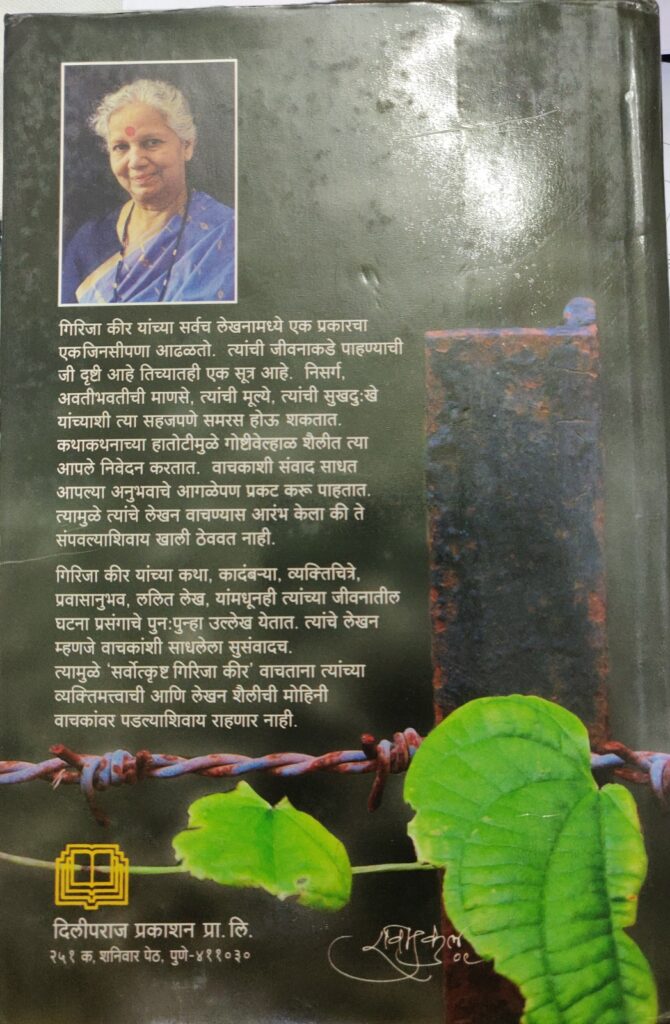 गिरिजा कीर यांच्या सर्वच लेखनामध्ये एक प्रकारचा
एकजिनसीपणा आढळतो. त्यांची जीवनाकडे पाहण्याची
जी दृष्टी आहे तिच्यातही एक सूत्र आहे. निसर्ग,
अवतीभवतीची माणसे, त्यांची मूल्ये, त्यांची सुखदुःखे
यांच्याशी त्या सहजपणे समरस होऊ शकतात.
कथाकथनाच्या हातोटीमुळे गोष्टीवेल्हाळ शैलीत त्या
आपले निवेदन करतात. वाचकाशी संवाद साधत
आपल्या अनुभवाचे आगळेपण प्रकट करू पाहतात.
त्यामुळे त्यांचे लेखन वाचण्यास आरंभ केला की ते
संपवल्याशिवाय खाली ठेववत नाही.
गिरिजा कीर यांच्या कथा, कादंबऱ्या, व्यक्तिचित्रे,
प्रवासानुभव, ललित लेख, यांमधूनही त्यांच्या जीवनातील
घटना प्रसंगाचे पुनःपुन्हा उल्लेख येतात. त्यांचे लेखन
म्हणजे वाचकांशी साधलेला सुसंवादच.
त्यामुळे ‘सर्वोत्कृष्ट गिरिजा कीर’ वाचताना त्यांच्या
व्यक्तिमत्त्वाची आणि लेखन शैलीची मोहिनी
वाचकांवर पडल्याशिवाय राहणार नाही.
दिलीपराज प्रकाशन प्रा. लि.
२५१ क, शनिवार पेठ, पुणे-४११०३०